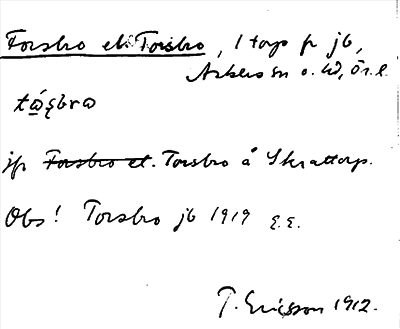 Forsbro el. Torsbro, 1 torp fr jb,
Askers sn o. hd, Ör. l.
tώ̲ʂbrω
jfr Forsbro el. Torsbro å Skrattorp.
Obs! Torsbro jb 1919 E.E.
T. Ericsson 1912.